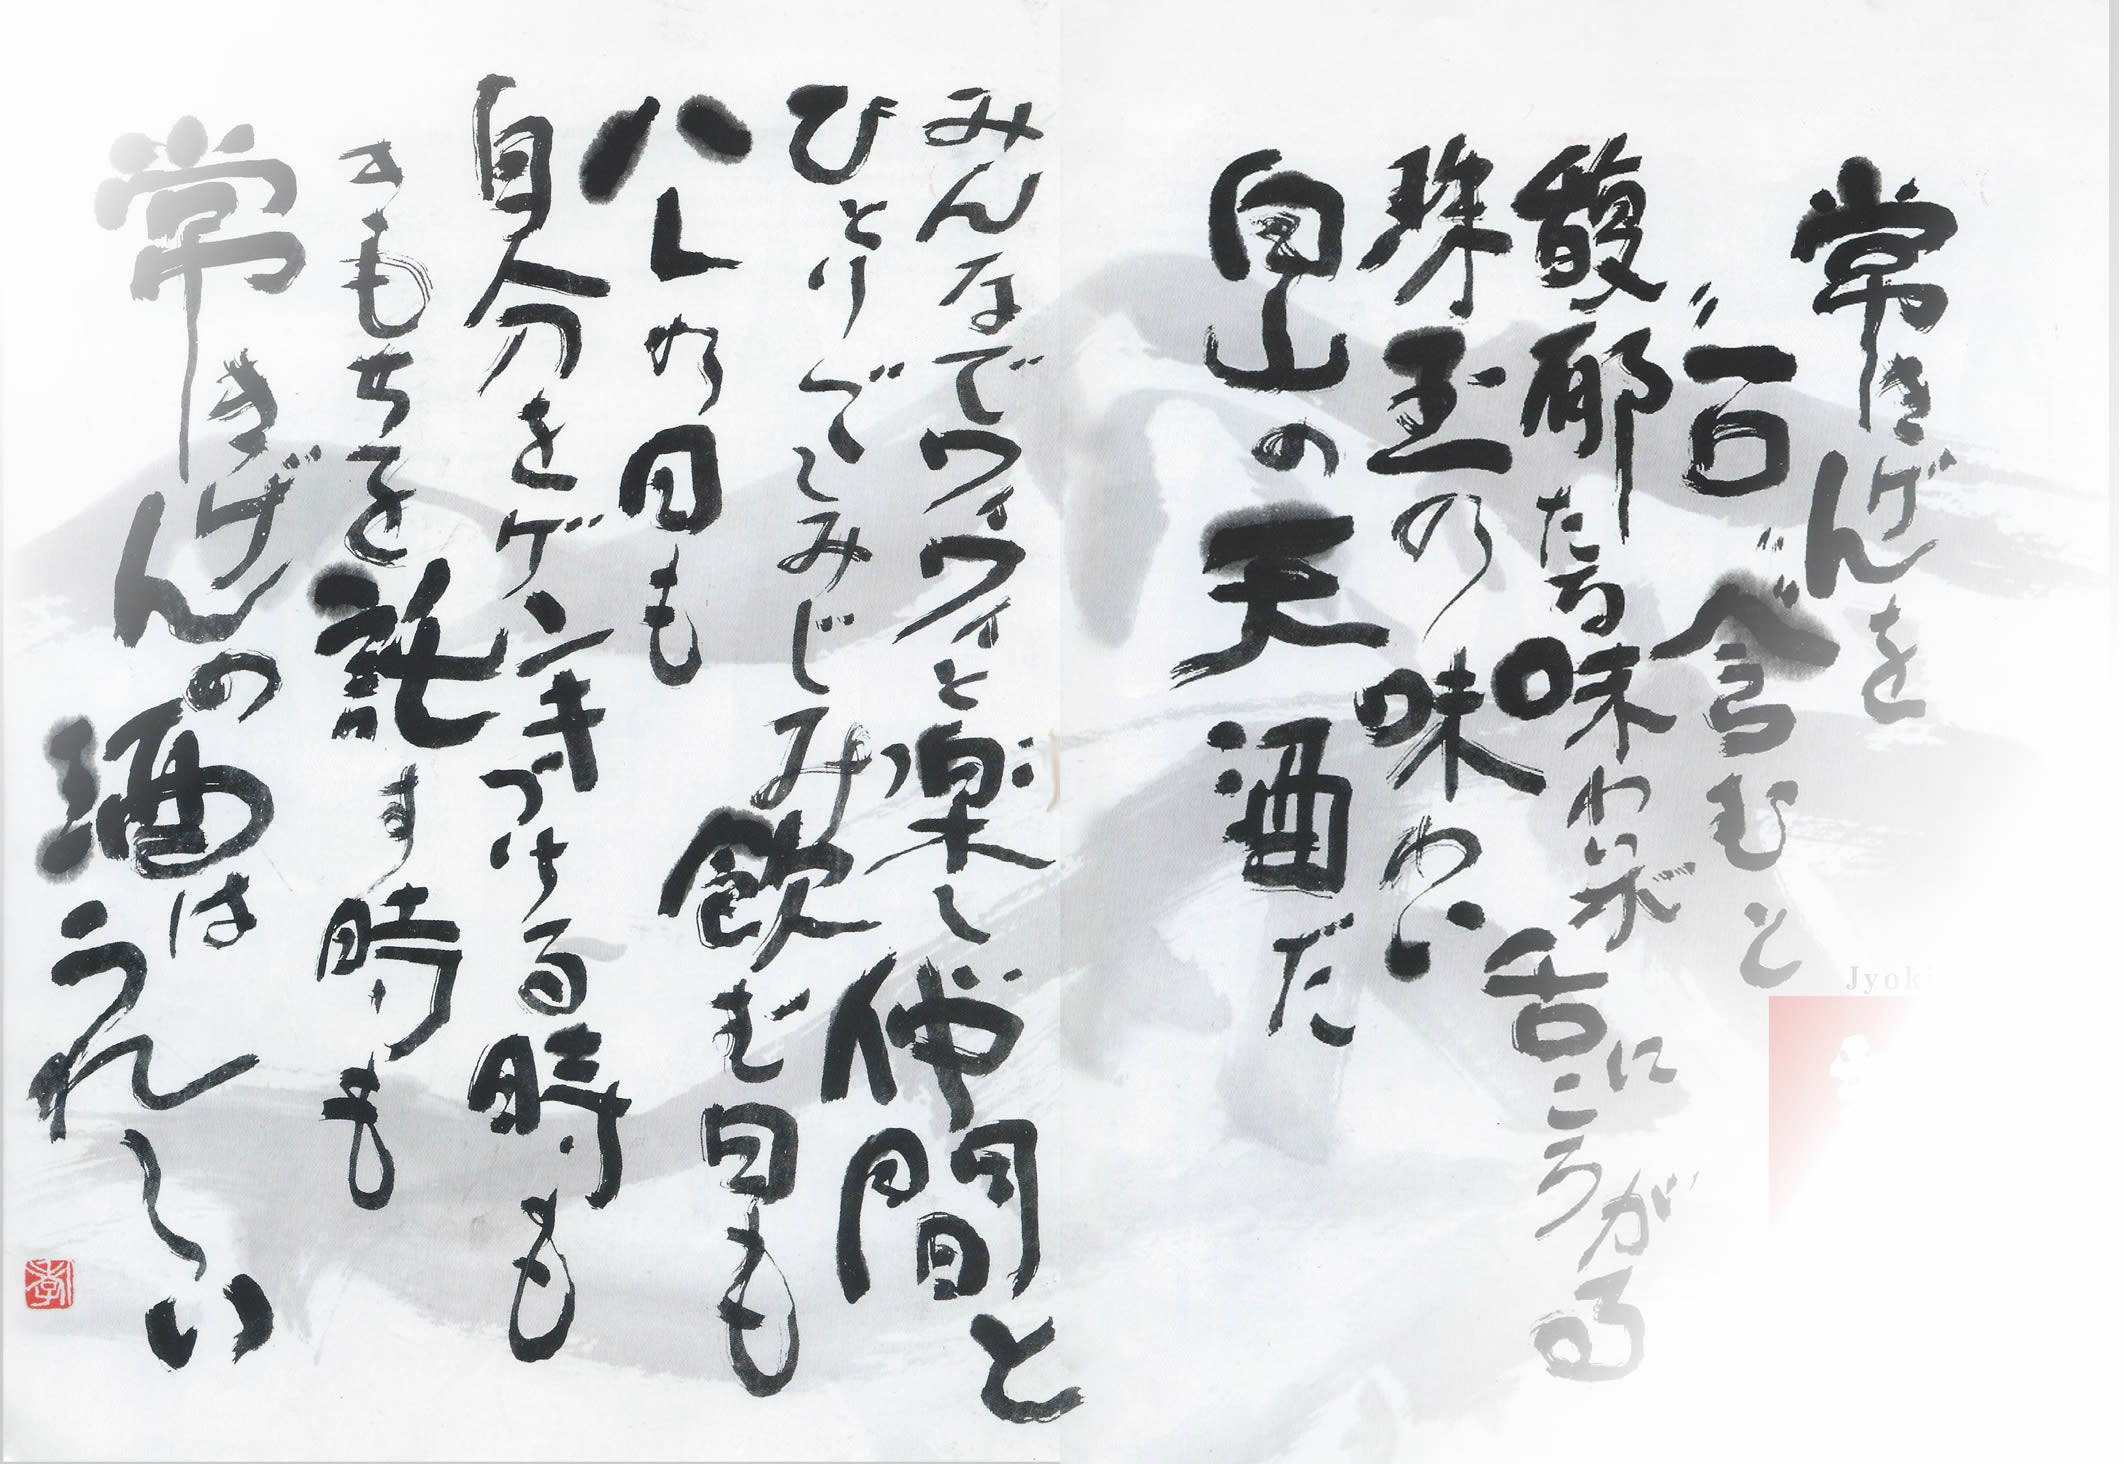 常きげんを
〝一口〟含むと
馥郁たる味わいが舌にころがる
珠玉の味わい
白山の天酒だ
みんなでワイワイと楽し仲間と
ひとりでしみじみ飲む日も
ハレの日も
自分をゲンキづける時も
きもちを託す時も
常きげんの酒はうれしい
Jyok